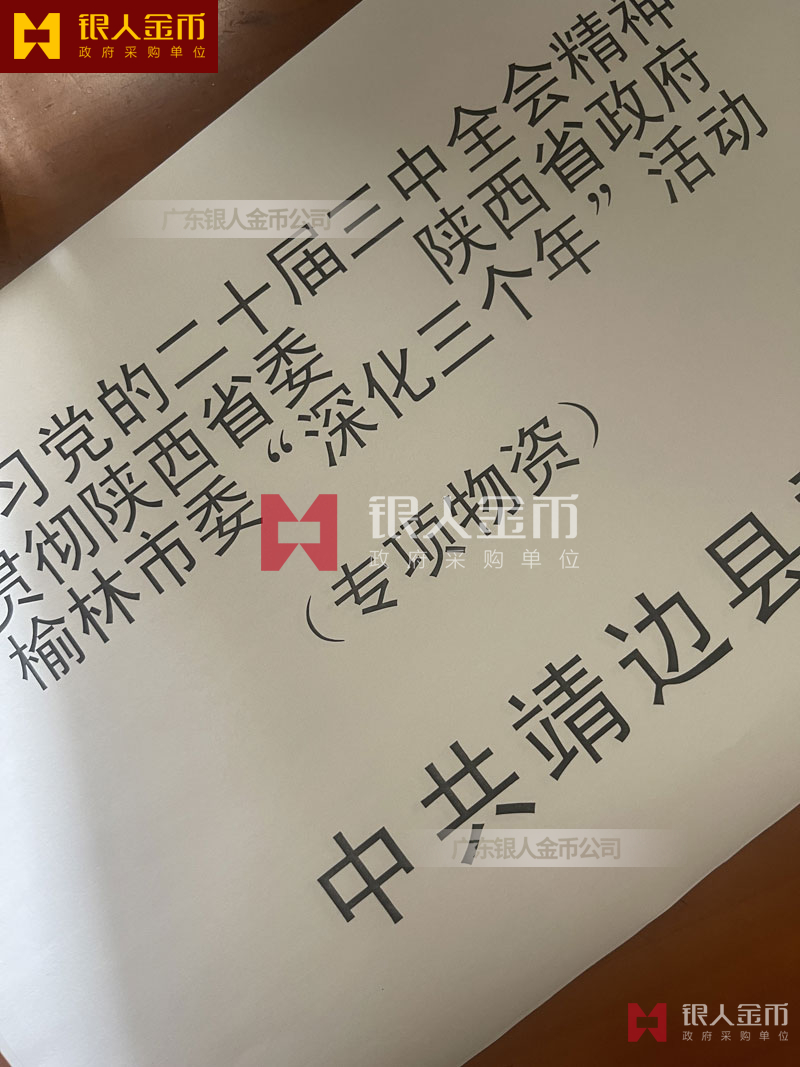 银人金币
政府采购单位
习党的二十届三中全会精神
贯彻陕西省委 陕西省政府
榆林市委“深化三个年”活动
（专项物资）
中共靖边县
广东银人金币公司
银人金币
政府采购单位
广东银人金币公司
银人金币
政府采购单位